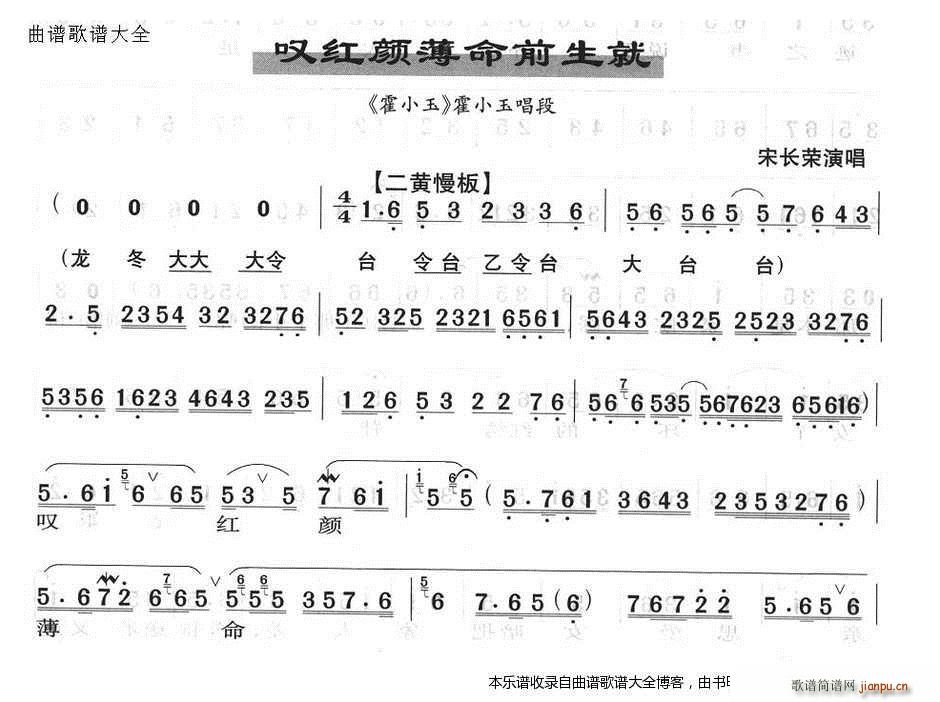 曲谱歌谱大全
叹红颜薄命前生就
《霍小玉》霍小玉唱段
宋长荣演唱
【二黄慢板】
( 0 0 0 0 | 4/4 1·6 5 3 2 3 3 6 | 5 6 5 6 5 5 7 6 4 3 |
(龙 冬 大大 大令 台 令台 乙令台 大 台 台)
2·5 2354 32 3276 | 52 325 2321 6561 | 5643 2325 2523 3276 |
5356 1623 4643 235 | 126 53 22 76 | 56 7 6 535 567623 65616) |
5·61 5 6 65 53 5 7 61 | 1 5 5 (5·761 3643 2353276) |
叹 红 颜
5·672 7 665 6 5 6 5 5 357·6 | 5 6 7·65 (6) 7672 2 5·65 6 |
薄 命
本乐谱收录自曲谱歌谱大全博客，由书
歌谱简谱网 jianpu.cn